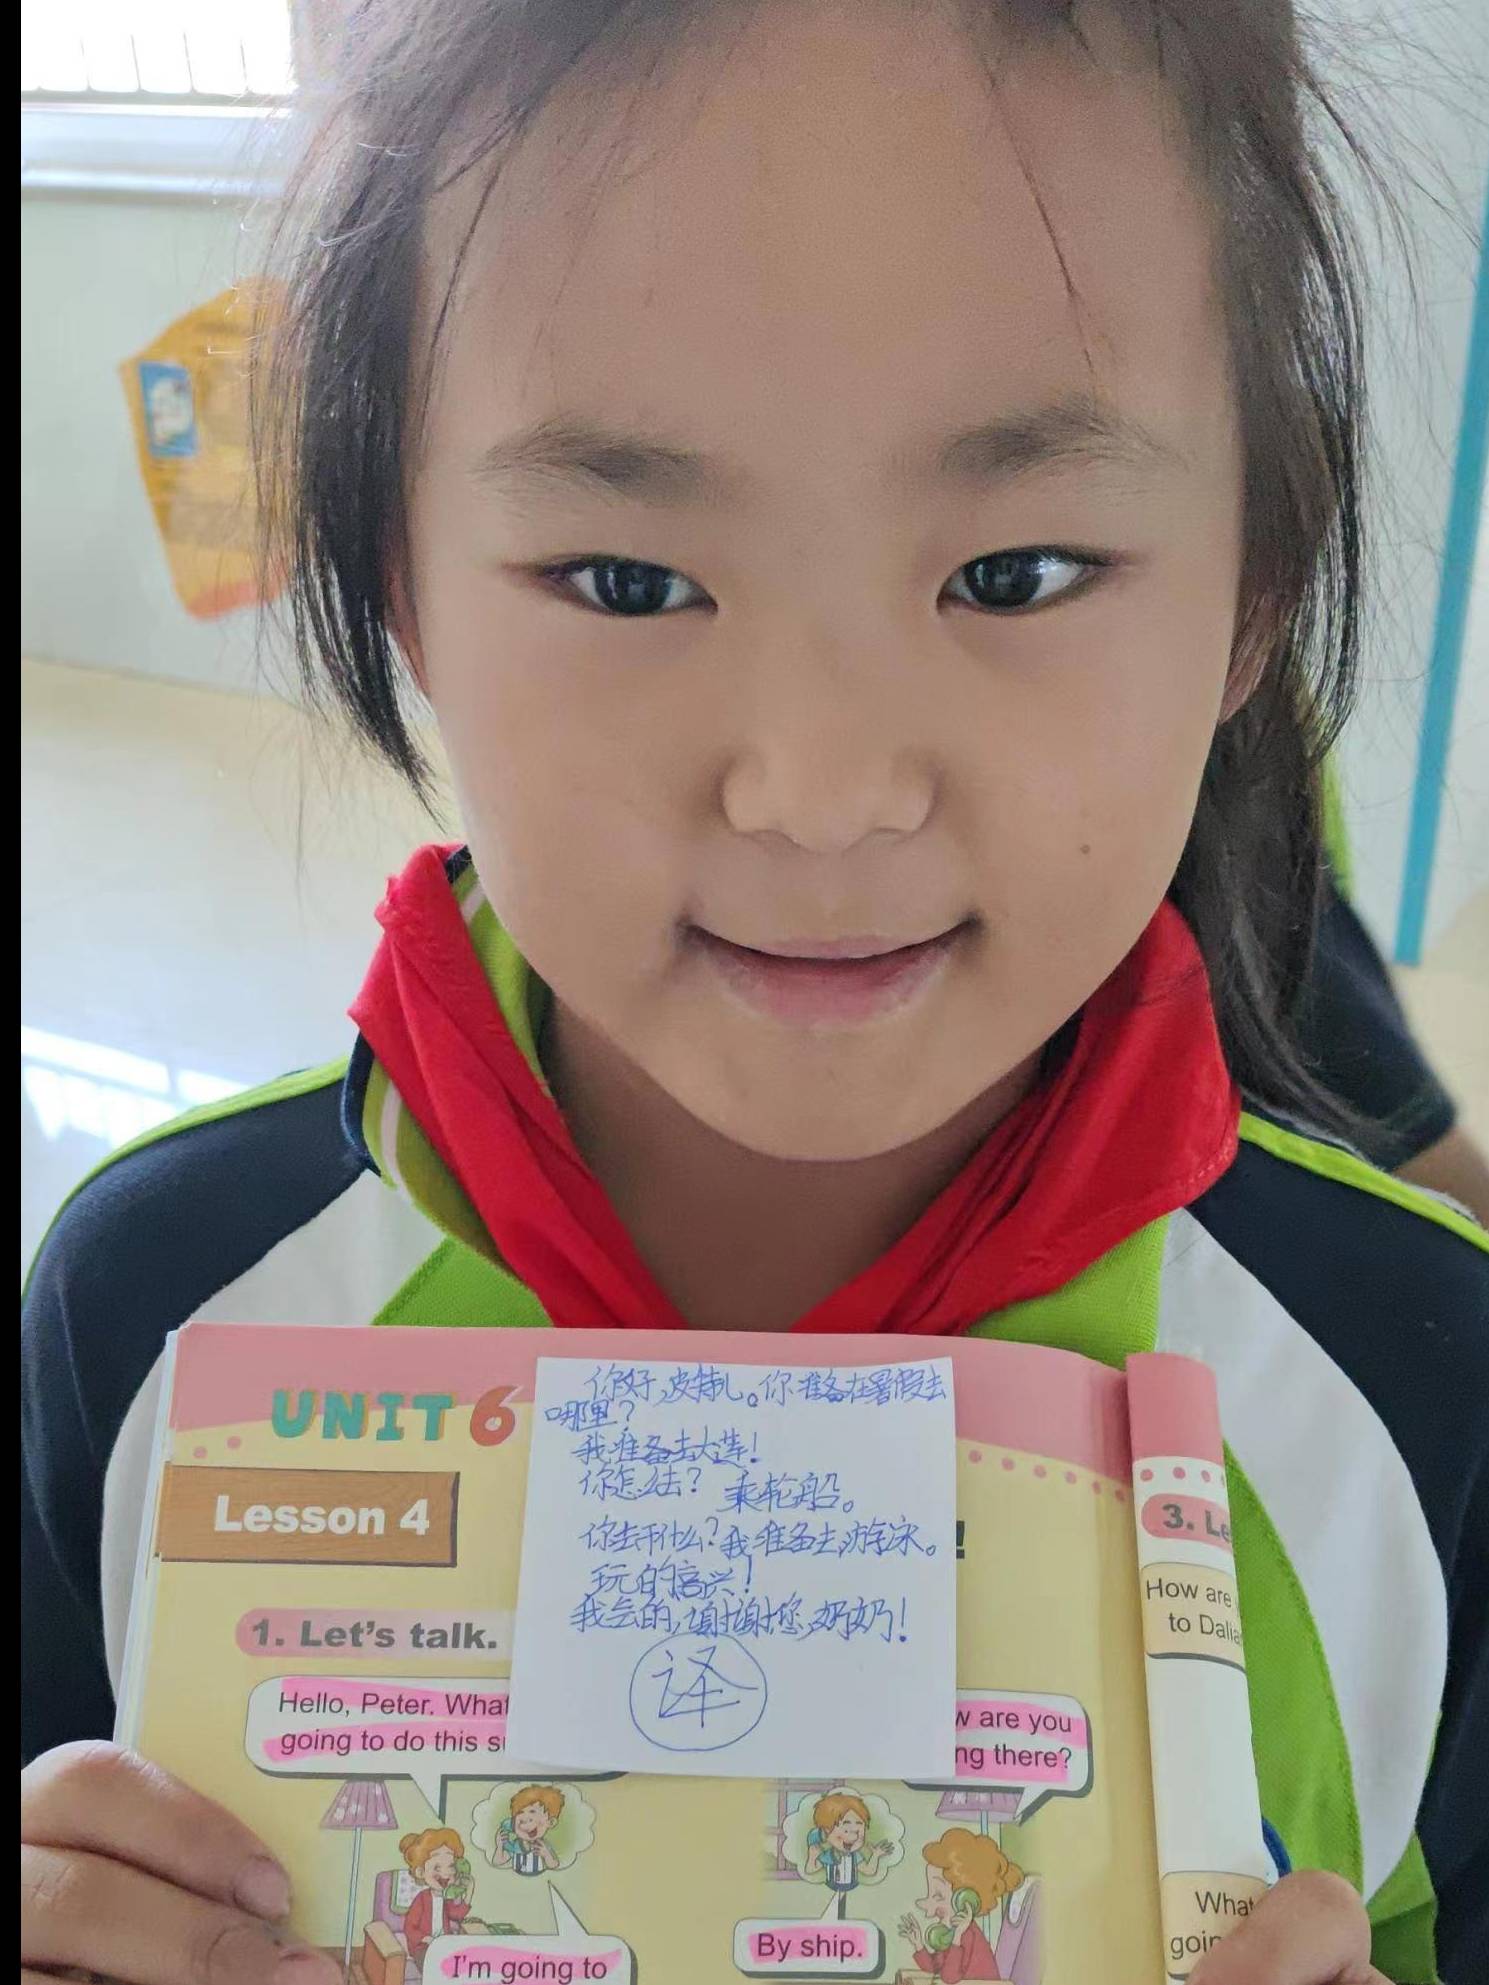 UNIT 6
Lesson 4
1. Let's talk.
Hello, Peter. What
going to do this s
你好,皮特儿。你准备在暑假去
哪里?
我准备去大莲!
你怎么去? 乘轮船。
你去干什么?我准备去游泳。
玩的高兴!
我会的,谢谢您,奶奶!
译
!
w are you
ng there?
I'm going to
By ship.
3. Le
How are
to Dalia
What
goin